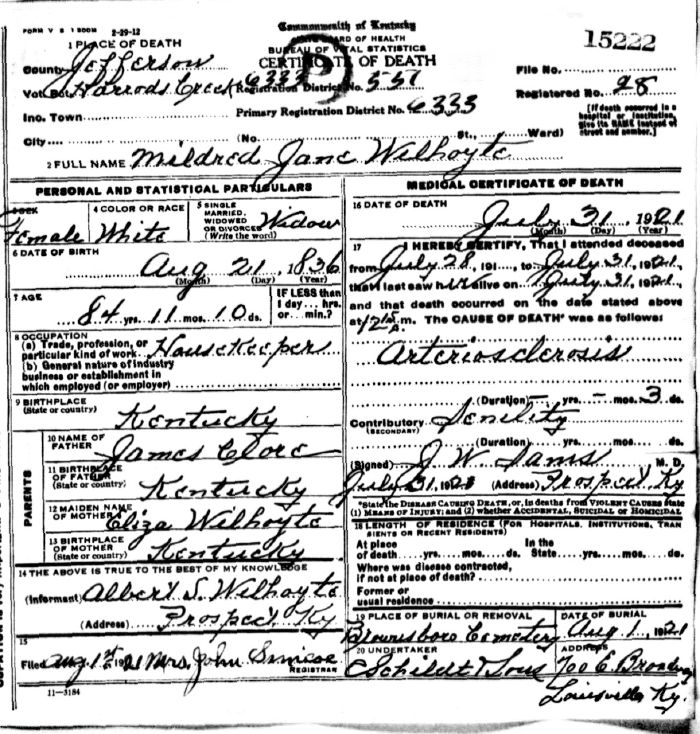 FORM V S 1 500M 2-29-12
Commonwealth of Kentucky
STATE BOARD OF HEALTH
BUREAU OF VITAL STATISTICS
CERTIFICATE OF DEATH
15222
1 PLACE OF DEATH
County Jefferson
Vot. Pct. Harrods Creek 6333 Registration District No. 557
File No.
Registered No. 28
Ino. Town Primary Registration District No. 6333
[If death occurred in a hospital or institution, give its NAME instead of street and number.]
City (No. St., Ward)
2 FULL NAME Mildred Jane Wilhoyte
PERSONAL AND STATISTICAL PARTICULARS
3 SEX Female
4 COLOR OR RACE White
5 SINGLE MARRIED, WIDOWED OR DIVORCED (Write the word) Widow
6 DATE OF BIRTH
Aug 21, 1836
(Month) (Day) (Year)
7 AGE
84 yrs. 11 mos. 10 ds.
IF LESS than 1 day... hrs. or... min.?
8 OCCUPATION
(a) Trade, profession, or particular kind of work Housekeeper
(b) General nature of industry business or establishment in which employed (or employer)
9 BIRTHPLACE
(State or country) Kentucky
PARENTS
10 NAME OF FATHER James Clore
11 BIRTHPLACE OF FATHER (State or country) Kentucky
12 MAIDEN NAME OF MOTHER Eliza Wilhoyte
13 BIRTHPLACE OF MOTHER (State or country) Kentucky
14 THE ABOVE IS TRUE TO THE BEST OF MY KNOWLEDGE
(Informant) Albert S. Wilhoyte
(Address) Prospect Ky
15
Filed Aug 1st 1921 Mrs. John Simcoe
REGISTRAR
11-3184
MEDICAL CERTIFICATE OF DEATH
16 DATE OF DEATH
July 31, 1921
(Month) (Day) (Year)
17 I HEREBY CERTIFY, That I attended deceased
from July 28, 191..., to July 31, 1921,
that I last saw her alive on July 31, 1921,
and that death occurred on the date stated above
at m. The CAUSE OF DEATH* was as follows:
Arteriosclerosis
(Duration) – yrs. – mos. 3 ds.
Contributory Senility
(SECONDARY)
(Duration) yrs. mos. ds.
(Signed) J W. Sams M. D.
July 31, (Address) Prospect, Ky
*State the DISEASE CAUSING DEATH, or, in deaths from VIOLENT CAUSES state (1) MEANS OF INJURY; and (2) whether ACCIDENTAL, SUICIDAL OR HOMICIDAL
18 LENGTH OF RESIDENCE (FOR HOSPITALS, INSTITUTIONS, TRANSIENTS OR RECENT RESIDENTS)
At place of death yrs. mos. ds. In the State yrs. mos. ds.
Where was disease contracted, if not at place of death?
Former or usual residence
19 PLACE OF BURIAL OR REMOVAL
Brownsboro Cemetery
DATE OF BURIAL
Aug 1, 1921
20 UNDERTAKER
C Schildt & Sons
ADDRESS
700 E Broadway
Louisville Ky.